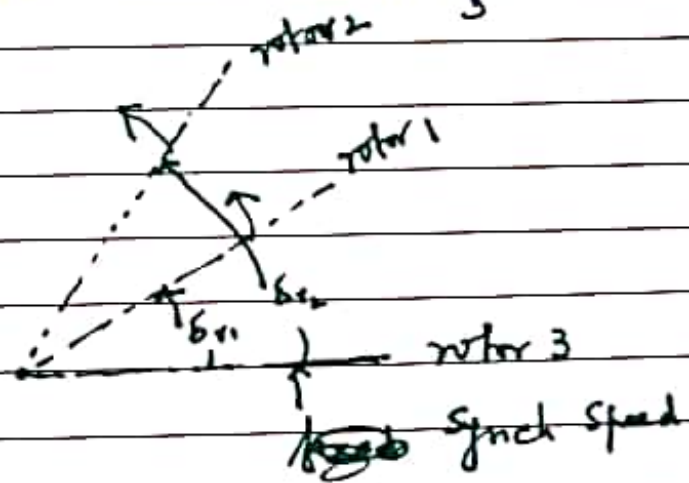 rotor 2
rotor 1
δr2
δr1
rotor 3
Synch Speed